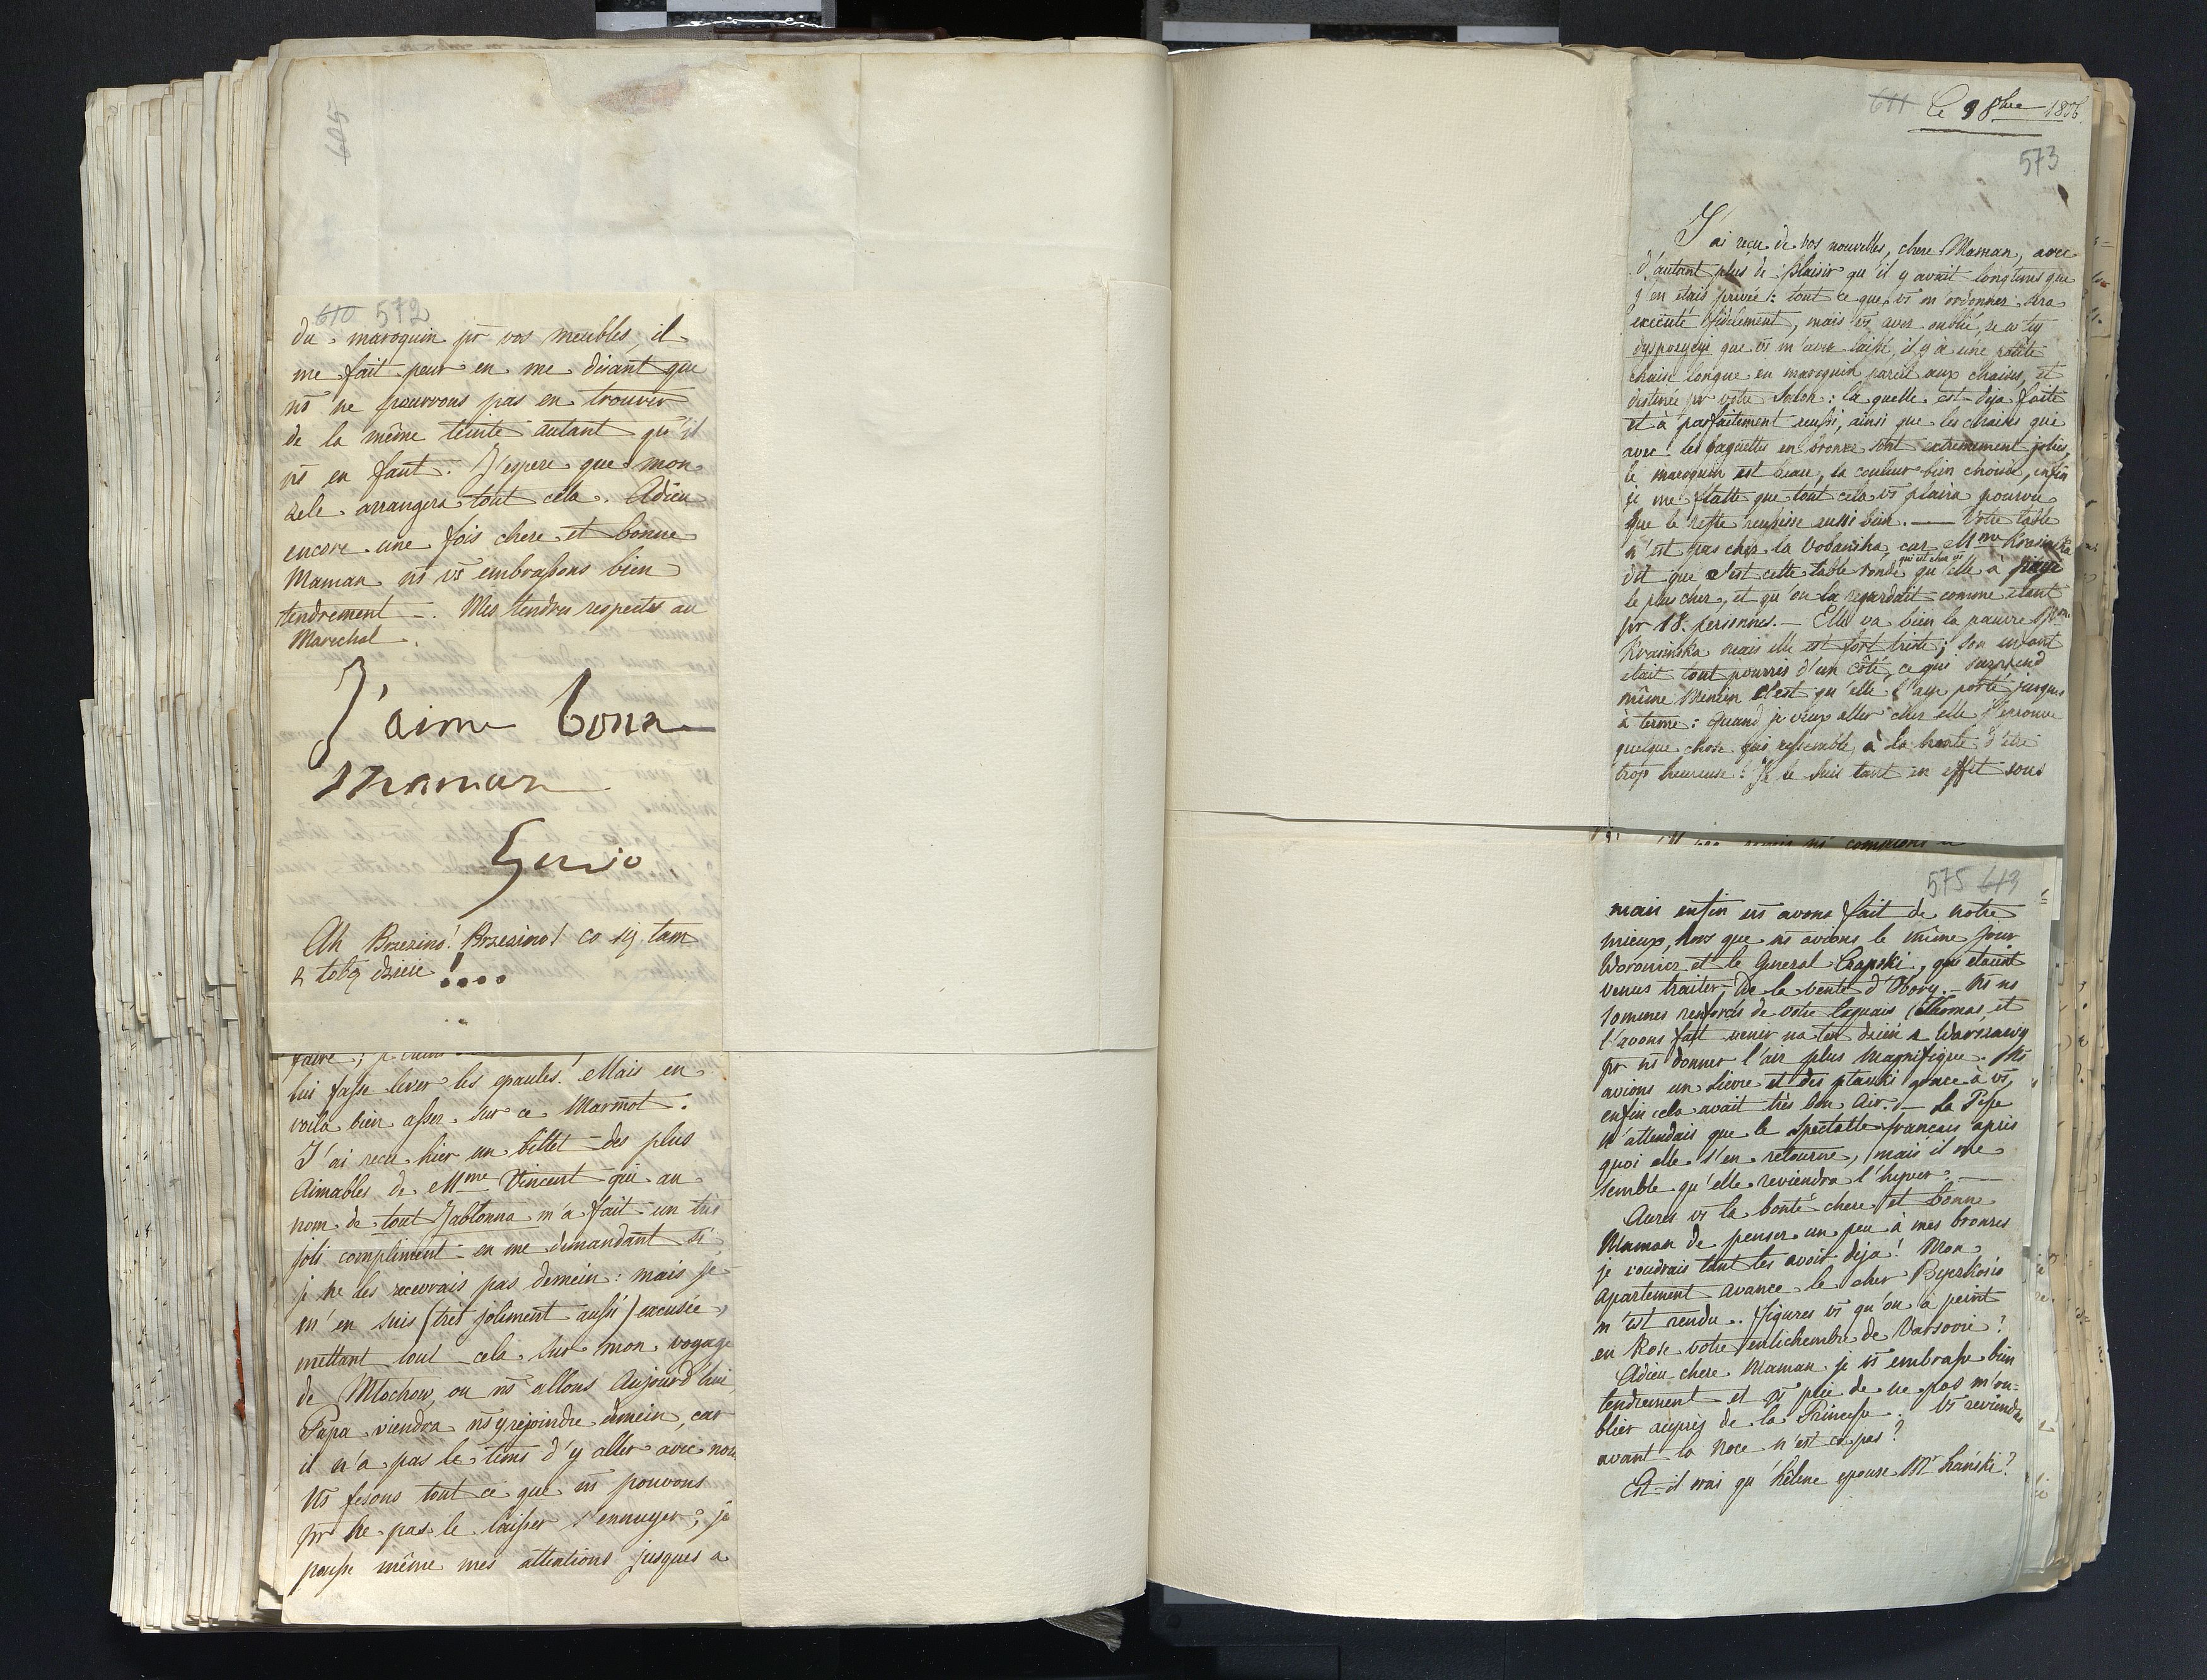 605
610 572
du maroquin pr vos meubles, il
me fait peur en me disant que
ns ne pourrons pas en trouver
de la même teinte autant qu'il
ns en faut. J'espere que mon
zele arrangera tout cela. Adieu
encore une fois chere et bonne
Maman ns vs embrassons bien
tendrement. Mes tendres respects au
Marechal.
J'aime bonne
Maman
Gucio
Ah Brzezino! Brzezino! co się tam
z tobą dzieie !....
faire;
lui fasse lever les epaules! Mais en
voila bien assez sur ce Marmot.
J'ai recu hier un billet des plus
aimables de Mme Vincent qui au
nom de tout Jablonna m'a fait un très
joli compliment en me demandant si
je ne les recevrais pas demein: mais je
m'en suis (très joliment aussi) excusée,
mettant tout cela sur mon voyage
de Mlochow, ou ns allons Aujourd'hui
Papa viendra ns y rejoindre demein, car
il n'a pas le tems d'y aller avec nous
Ns fesons tout ce que ns pouvons
pr ne pas le laisser s'ennuyer; je
pousse même mes attentions jusques a
611 Le 9 8bre 1806
573
J'ai recu de vos nouvelles, chere Maman, avec
d'autant plus de plaisir qu'il y avait longtems que
j'en etais privée: tout ce que vs m'ordonnez sera
executé fidelement, mais vs avez oublié, ze w tey
dyspozycyi que vs m'avez laissé, il y a une petite
chaise longue en maroquin pareil aux chaises, et
destinée pr votre Salon: la quelle est deja faite
et à parfaitement reussi, ainsi que les chaises qui
avec les baguettes en bronze sont extremement jolies,
le maroquin est beau, la couleur bien choisie, enfin
je me flatte que tout cela vs plaira pourvu
que le reste reussisse aussi bien. — Votre table
n'est pas chez la car Mme Krasinska
dit que c'est cette table ronde qu'elle a payé
le plus cher, et qu'on la regardait comme etant
pr 18. personnes. — Elle va bien la pauvre Mme
Krasinska mais elle est fort triste; son enfant
etait tout pourri d'un côté, ce qui surprend
même c'est qu'elle l'aye porté jusques
à terme: quand je veux aller chez elle j'eprouve
quelque chose qui ressemble à la honte d'etre
trop heureuse: Je le suis tant en effet sous
ns comptions
575 613
mais enfin ns avons fait de notre
mieux, hors que ns avions le même jour
Woronicz et le General Czapski, qui etaient
venus traiter de la vente d'Obory. — Ns ns
sommes renforcés de votre laquais Thomas, et
l'avons fait venir na ten dzień z Warszawy
pr ns donner l'air plus magnifique. Ns
avions un lievre et des ptaszki grace à vs,
enfin cela avait très bon air. — La Psse
n'attendais que le spectacle francais après
quoi elle s'en retourne, mais il me
semble qu'elle reviendra l'hyver. —
Aurez vs la bonté chere et bonne
Maman de penser un peu à mes bronzes
je voudrais tant les avoir deja! Mon
apartement avance le cher
m'est rendu. Figurez vs qu'on a peint
en Rose votre entichembre de Varsovie?
Adieu chere Maman je vs embrasse bien
tendrement et vs prie de ne pas m'ou-
blier auprès de la Princesse. Vs reviendrez
avant la noce n'est ce pas?
Est-il vrai qu'hélene epouse Mr hański?